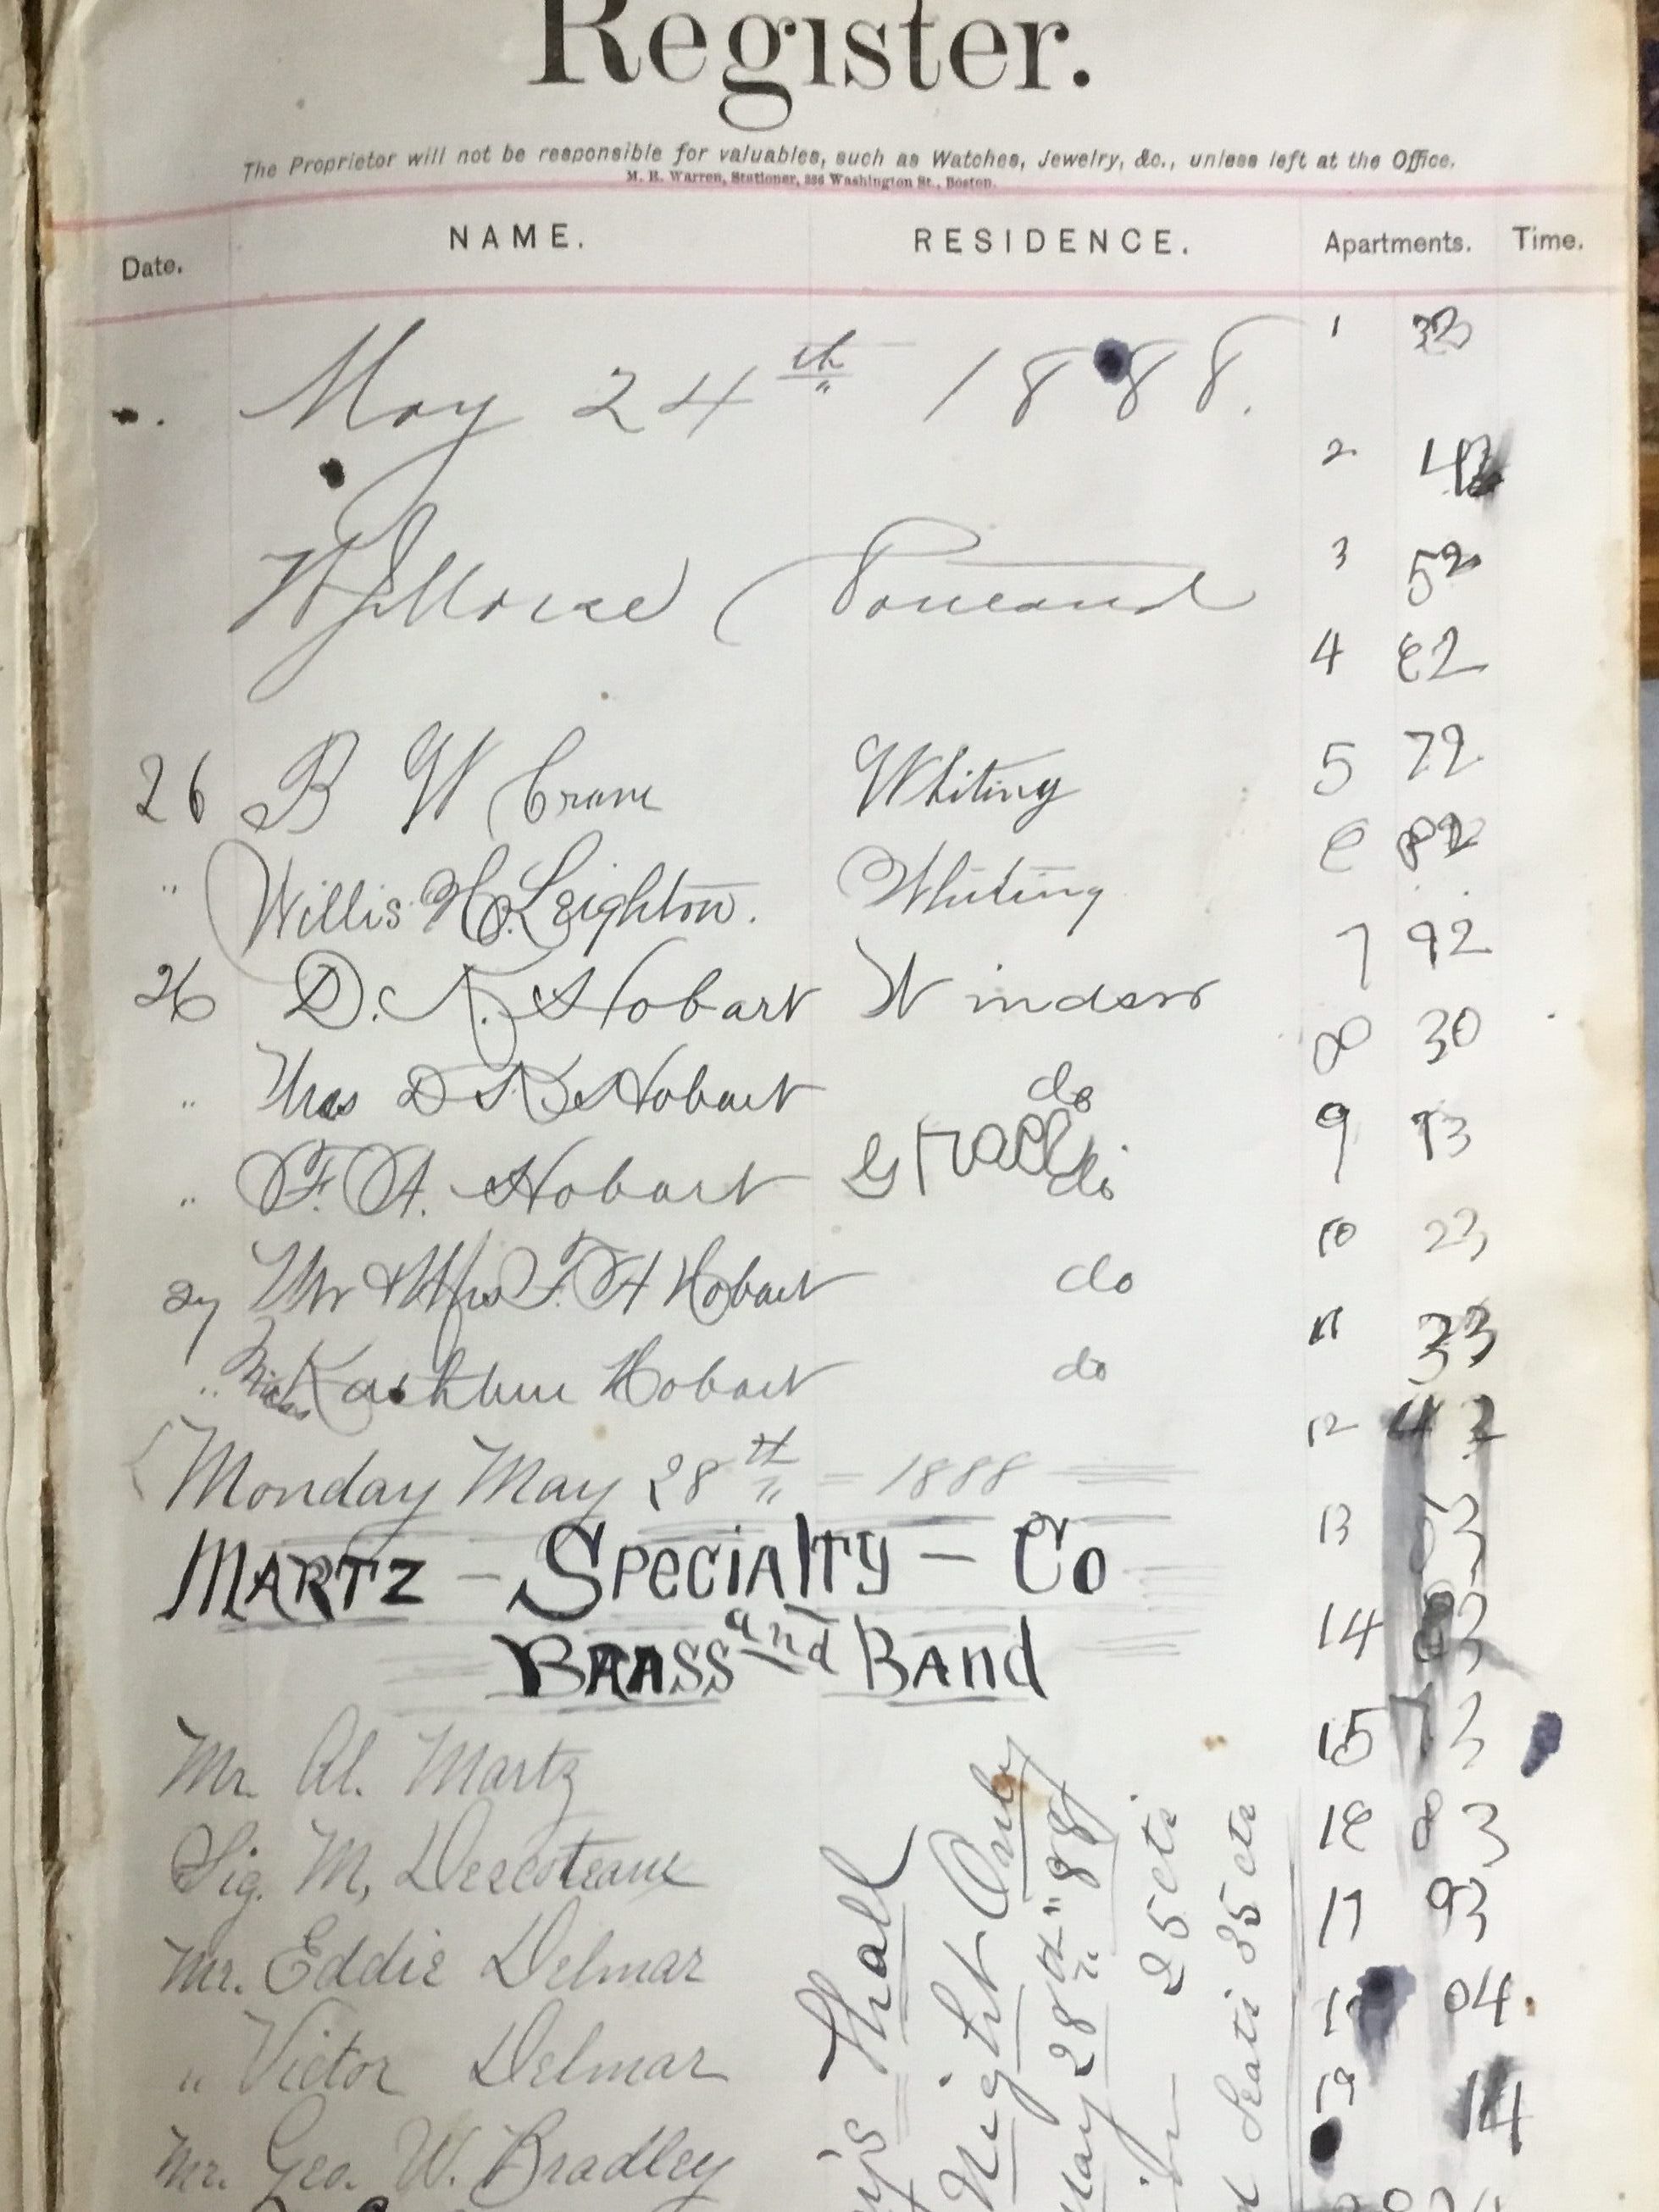 Register.
The Proprietor will not be responsible for valuables, such as Watches, Jewelry, &c., unless left at the Office.
M. R. Warren, Stationer, 336 Washington St., Boston.
Date. NAME. RESIDENCE. Apartments. Time.
May 24th 1888.
1 33
2 43
3 52
4 62
26 B W Crane Whiting 5 72
" Willis H. Leighton. Whiting 6 82
7 92
26 D. K. Hobart Windsor
8 30
" Mrs D K Hobart do
9 13
" F. A. Hobart do
10 23
27 Mr & Mrs F. A Hobart do
11 33
" Hobart do
12 42
Monday May 28th = 1888
MARTZ – SPECIALTY – Co
13
and
BRASS BAND
14
Mr. Al. Martz
15 73
Sig. M,
16 83
Mr. Eddie Delmar
17 93
04
" Victor Delmar
19 14
Mr. Geo. W. Bradley
Hall
Night Only
May 28th " 88
25 cts
Seats 35 cts